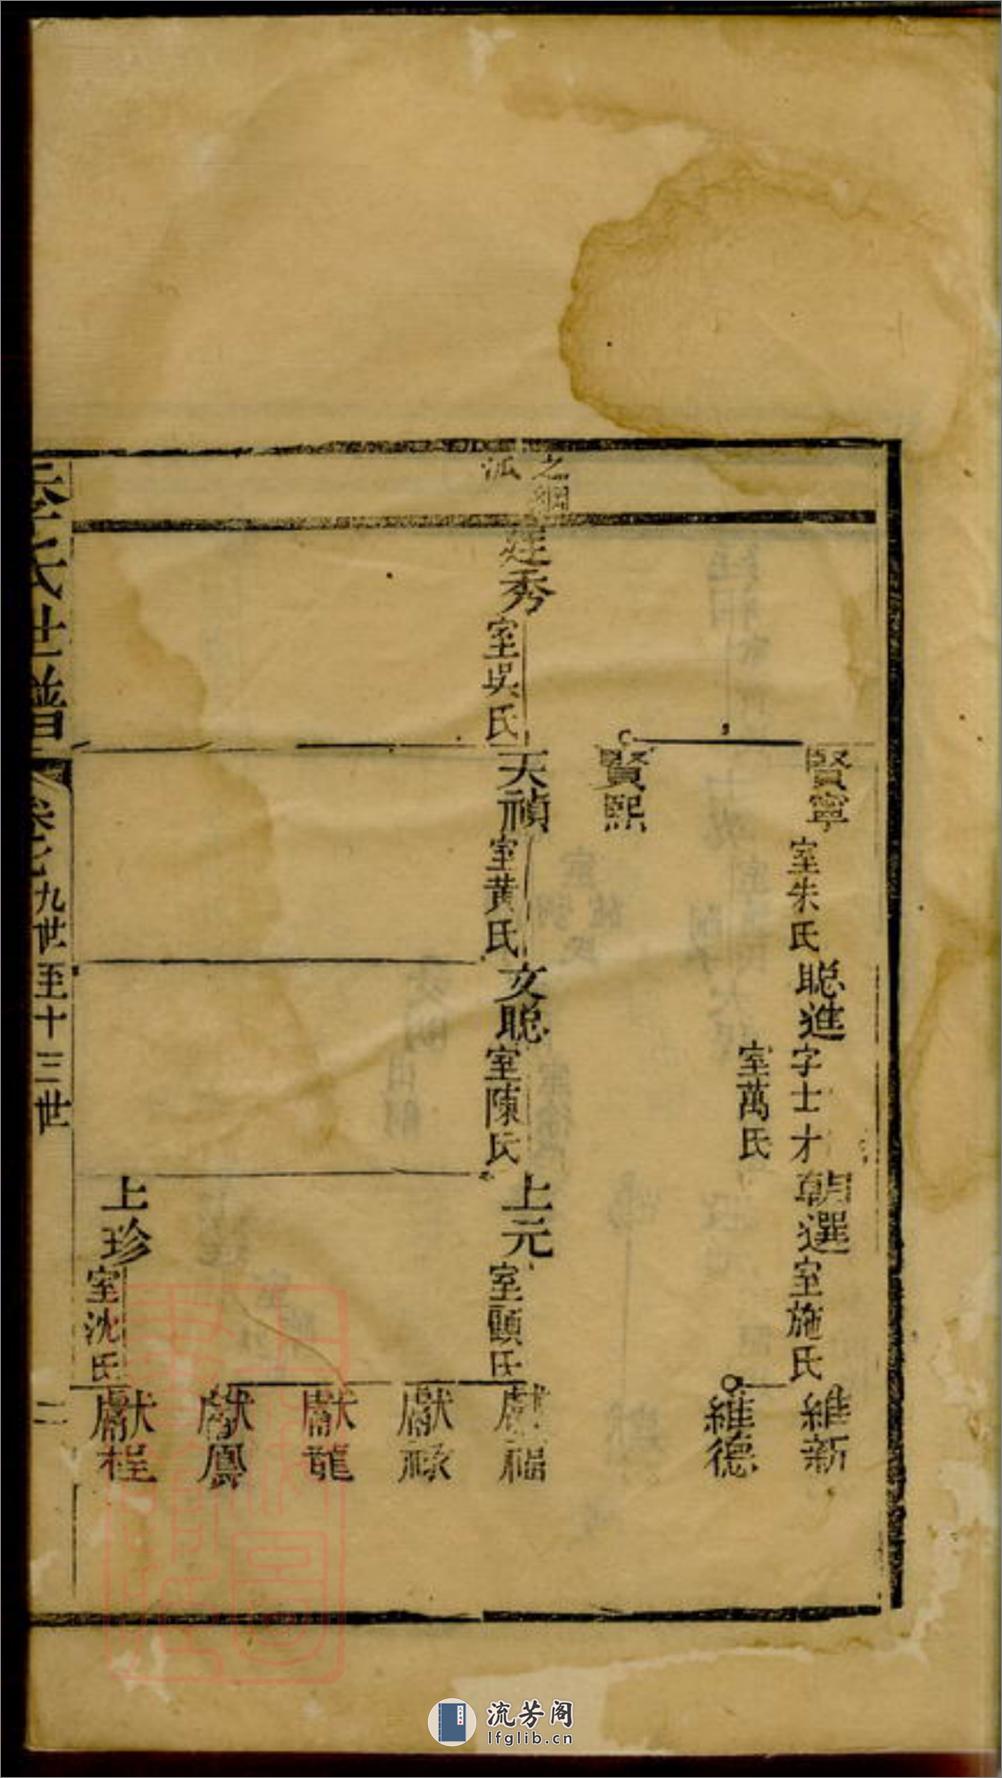 賢寧
室朱氏
聡進
字士才
室萬氏
朝選
室施氏
維新
維德
賢熙
之綱
派
廷秀
室吳氏
天禎
室黃氏
文聡
室陳氏
上元
室顧氏
獻福
獻祿
獻龍
獻鳳
上珍
室沈氏
獻程
氏世譜
卷七
九世至十三世
二
流芳阁
lfglib.cn